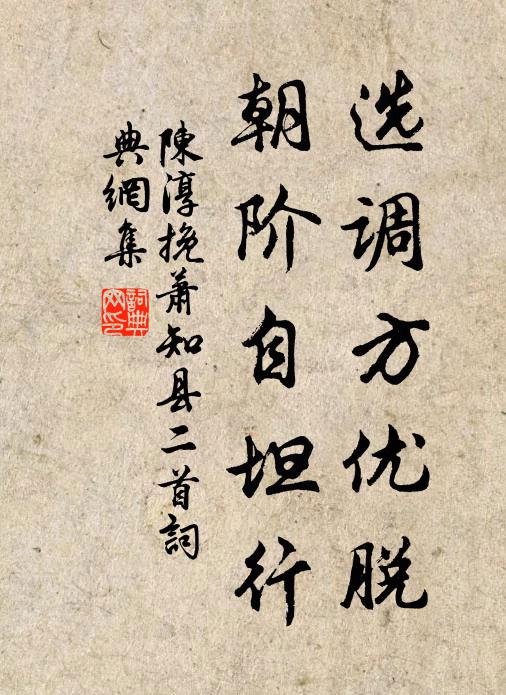 选调方优脱
朝阶自坦行
陳淳挽萧知县二首詞
典網集
詞典
网印